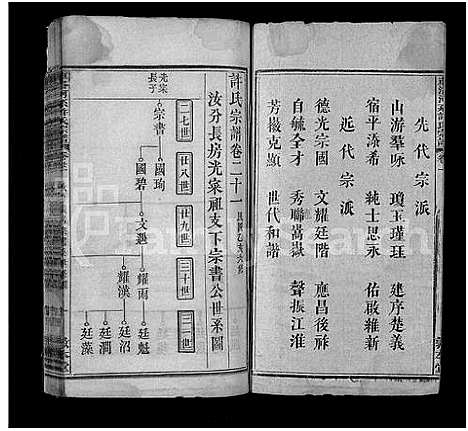 先代宗派
山游羣咏 瓊玉瑾珏 建序楚義
宿平添希 純士思永 佑啟維新
近代宗派
德光宗國 文耀廷階 應昌後祚
自毓全才 秀聯嵩嶽 聲振江淮
芳徽克顯 世代和諧
許氏宗譜卷二十一
汝分長房光寀祖支下宗書公世系圖
二七世
廿八世
廿九世
三十世
三一世
光寀長子
宗書
國琦
國碧
文遇
耀雨
耀漢
廷魁
廷沼
廷潤
廷藻